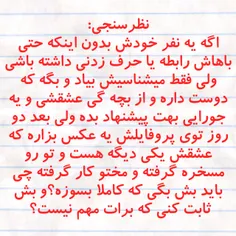 نظرسنجی:
اگه یه نفر خودش بدون اینکه حتی
باهاش رابطه یا حرف زدنی داشته باشی
ولی فقط میشناسیش بیاد و بگه که
دوست داره و از بچه گی عشقشی و یه
جورایی بهت پیشنهاد بده ولی بعد دو
روز توی پروفایلش یه عکس بزاره که
عشقش یکی دیگه هست و تو رو
مسخره گرفته و مختو کار گرفته چی
باید بش بگی که کاملا بسوزه؟و بش
ثابت کنی که برات مهم نیست؟